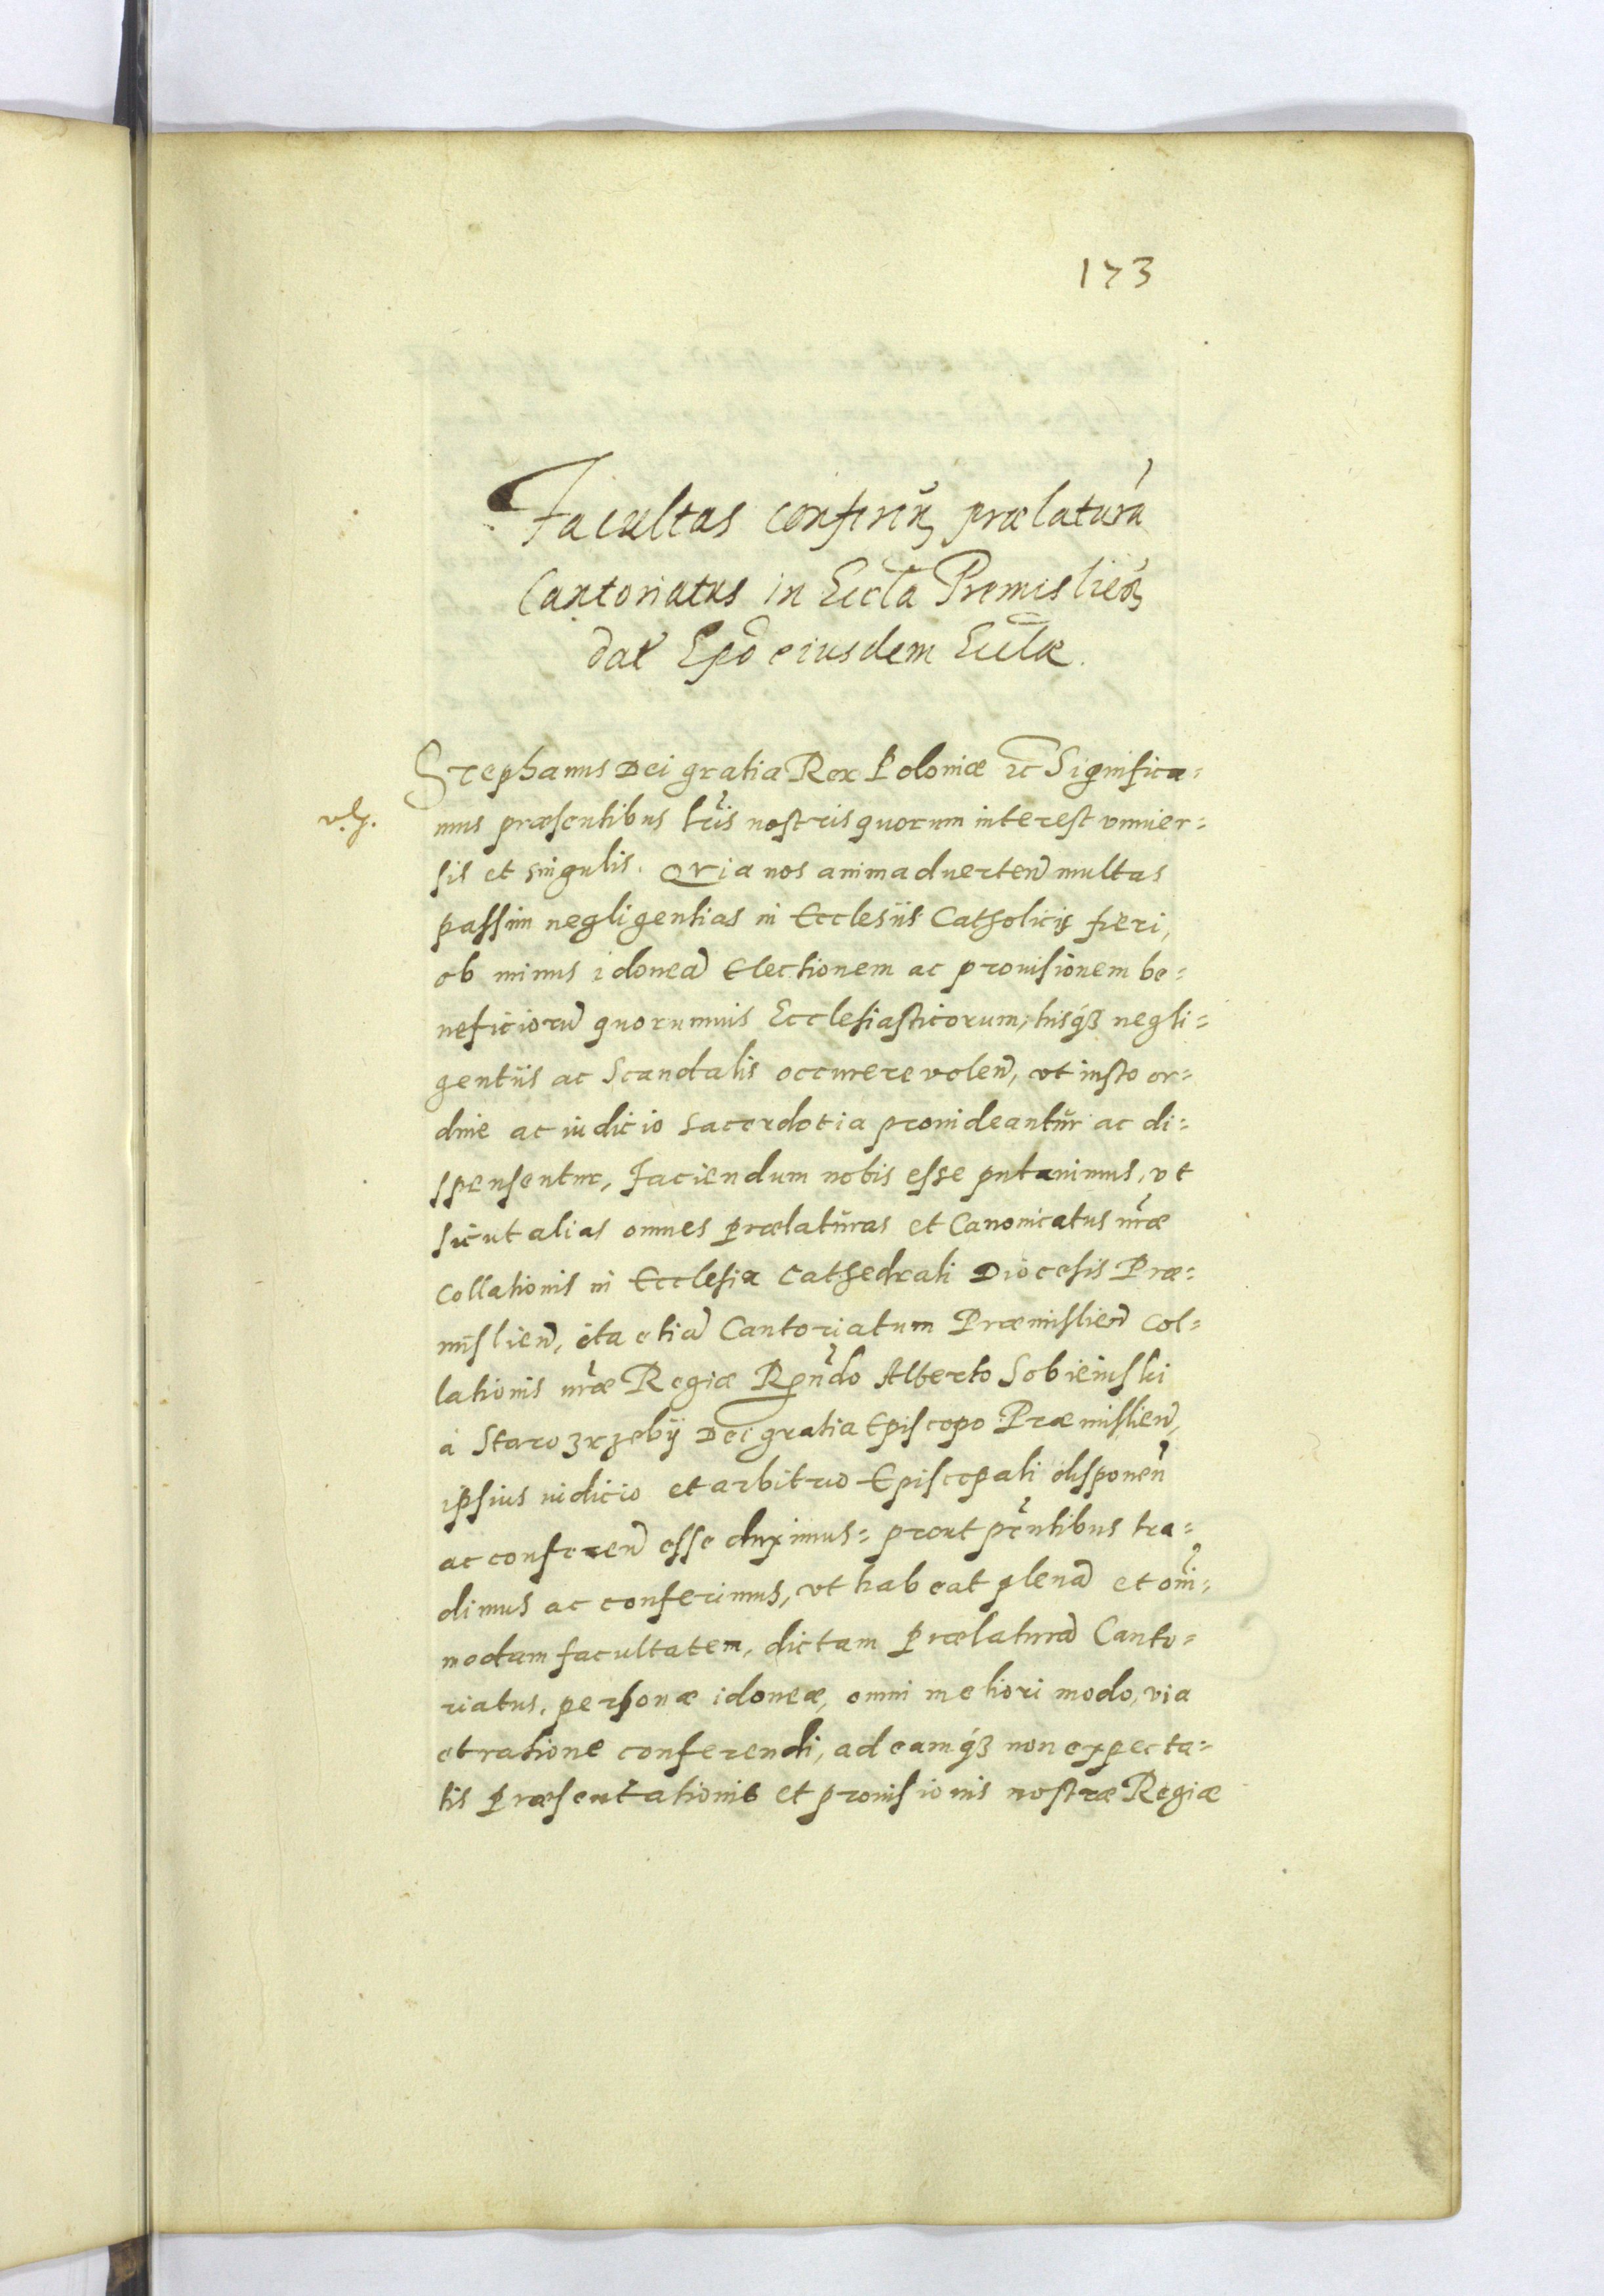 173
Facultas conferen̄ prælaturā
Cantoriatus in Eccla Premislien̄
dat Epo eiusdem Eccłæ.
Stephanus Dei gratia Rex Poloniæ etc Significa=
mus præsentibus lris nostris quorum interest vniuer=
sis et singulis. Qvia nos animaduerten̄ multas
passim negligentias in Ecclesiis Catholicis fieri,
ob minus idoneā Electionem ac prouisionem be=
neficiorū quorumuis Ecclesiasticorum, hisq́ꝫ negli=
gentiis ac Scandalis occurrere volen̄, vt iusto or=
dine ac iudicio sacerdotia prouideantur ac di=
spensentur, Faciendum nobis esse putauimus, vt
sicut alias omnes prælaturas et Canonicatus nræ
Collationis in Ecclesia Cathedrali Diocesis Præ=
mislien̄, ita etiā Cantoriatum Præmislien̄ Col=
lationis nræ Regiæ Rndo Alberto Sobieiuski
à Starozrzebÿ Dei gratia Episcopo Præmislien̄,
ipsius iudicio et arbitrio Episcopali disponen̄
ac conferen̄ esse duximus= prout prntibus tra=
dimus ac conferimus, vt habeat plenā et omi=
modam facultatem, dictam Prælaturā Canto=
riatus, personæ idoneæ, omni meliori modo, via
et ratione conferendi, ad eamq́ꝫ non expecta=
tis Præsentationis et prouisionis nostræ Regiæ